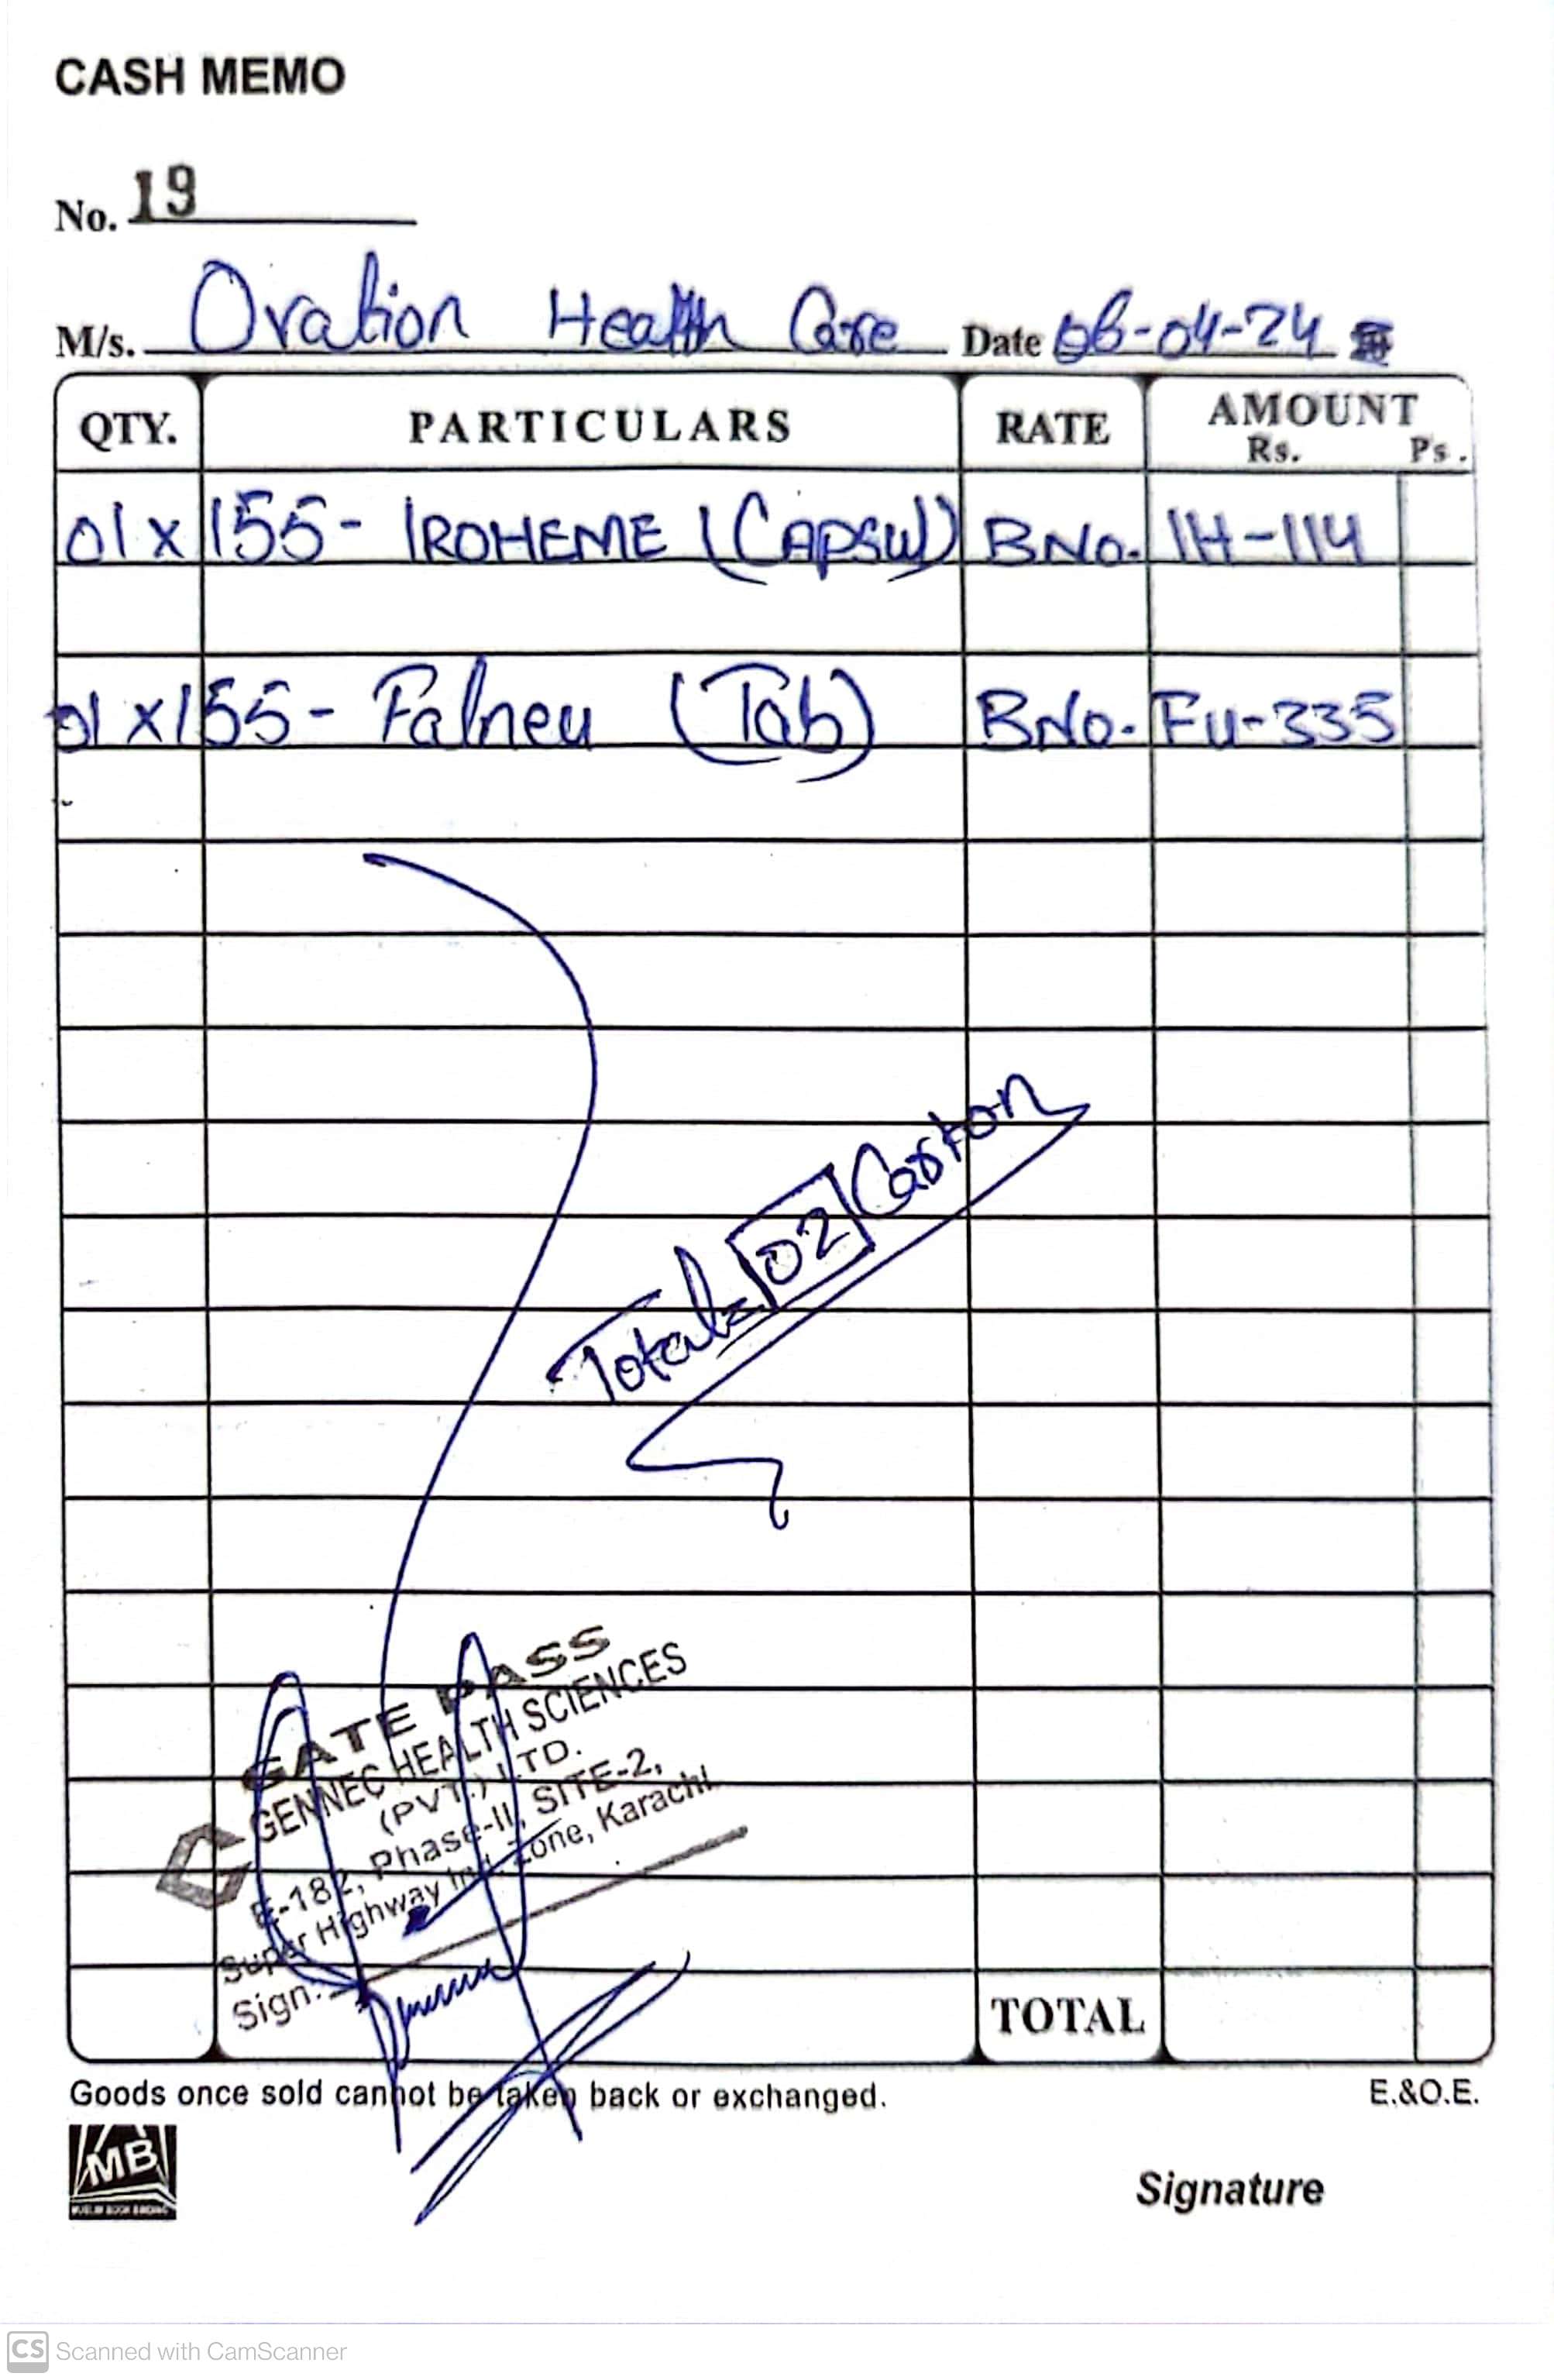 CASH MEMO
No. 19
M/s. Ovation Health Care Date 06-04-24
QTY. PARTICULARS RATE AMOUNT
Rs. Ps.
01 x 155 - IROHEME (CAPSUL) BNo. IH-114
01 x 155 - Falneu (Tab) BNo. FU-335
Total = 02 Carton
GATE PASS
GENNEC HEALTH SCIENCES
(PVT.) LTD.
E-182, Phase-II, SITE-2,
Super Highway Ind. Zone, Karachi.
Sign.
TOTAL
Goods once sold cannot be taken back or exchanged. E.&O.E.
MB
MUSLIM BOOK BINDING
Signature
CS Scanned with CamScanner